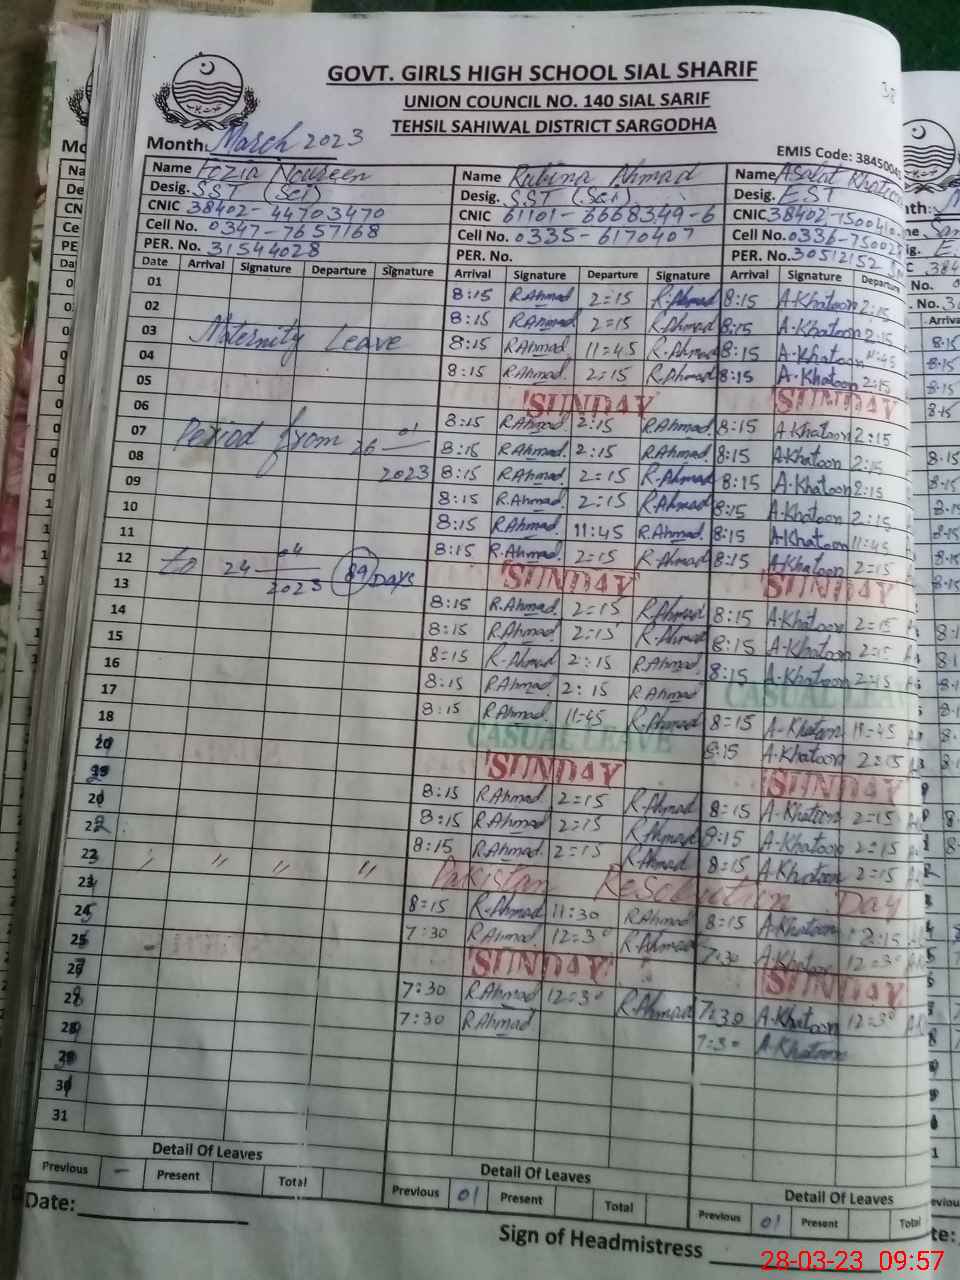 GOVT. GIRLS HIGH SCHOOL SIAL SHARIF
UNION COUNCIL NO. 140 SIAL SARIF
TEHSIL SAHIWAL DISTRICT SARGODHA
38
Month: March 2023
EMIS Code: 3845004
Name Fozia Noureen Name Rubina Ahmad Name Asalat Khatoon
Desig. SST (Sci) Desig. SST (Sci) Desig. EST
CNIC 38402-44703470 CNIC 61101-6668349-6 CNIC 38402-1500410
Cell No. 0347-7657168 Cell No. 0335-6170407 Cell No. 0336-750025
PER. No. 31544028 PER. No. PER. No. 30512152
Date Arrival Signature Departure Signature Arrival Signature Departure Signature Arrival Signature Departure
01 8:15 R.Ahmad 2=15 R.Ahmad 8:15 A-Khatoon 2:15
02 8:15 R.Ahmad 2=15 R.Ahmad 8:15 A-Khatoon 2:15
03 Maternity Leave 8:15 R.Ahmad 11=45 R.Ahmad 8:15 A-Khatoon 11:45
04 8:15 R.Ahmad 2:15 R.Ahmad 8:15 A-Khatoon 2:15
05 SUNDAY SUNDAY
06 8:15 R.Ahmad 2:15 R.Ahmad 8:15 A-Khatoon 2:15
07 Period from 26 01 8:15 R.Ahmad 2:15 R.Ahmad 8:15 A-Khatoon 2:15
08 2023 8:15 R.Ahmad 2=15 R.Ahmad 8:15 A-Khatoon 2:15
09 8:15 R.Ahmad 2:15 R.Ahmad 8:15 A-Khatoon 2:15
10 8:15 R.Ahmad 11:45 R.Ahmad 8:15 A-Khatoon 11=45
11 8:15 R.Ahmad 2=15 R.Ahmad 8:15 A-Khatoon 2:15
12 to 24 04 2023 89 Days SUNDAY SUNDAY
13 8:15 R.Ahmad 2=15 R.Ahmad 8:15 A-Khatoon 2=15
14 8:15 R.Ahmad 2:15 R.Ahmad 8:15 A-Khatoon 2:15
15 8=15 R-Ahmad 2:15 R.Ahmad 8:15 A-Khatoon 2=15
16 8:15 R.Ahmad 2:15 R.Ahmad CASUAL LEAVE
17 8:15 R.Ahmad 11=45 R.Ahmad 8=15 A-Khatoon 11=45
18 CASUAL LEAVE 8:15 A-Khatoon 2=15
SUNDAY SUNDAY
8:15 R.Ahmad 2=15 R.Ahmad 8=15 A-Khatoon 2=15
8:15 R.Ahmad 2=15 R.Ahmad 8:15 A-Khatoon 2=15
22 8:15 R.Ahmad 2=15 R.Ahmad 8=15 A-Khatoon 2=15
23 Pakistan Resolution Day
8=15 R.Ahmad 11=30 R.Ahmad 8=15 A-Khatoon 2:15
7:30 R.Ahmad 12=30 R.Ahmad 7:30 A-Khatoon 12=30
SUNDAY SUNDAY
7:30 R.Ahmad 12=30 R.Ahmad 7:30 A-Khatoon 12=30
7:30 R.Ahmad 7:30 A-Khatoon
31
Detail Of Leaves Detail Of Leaves Detail Of Leaves
Previous - Present Total Previous 01 Present Total Previous 01 Present Total
Date:
Sign of Headmistress
28-03-23 09:57